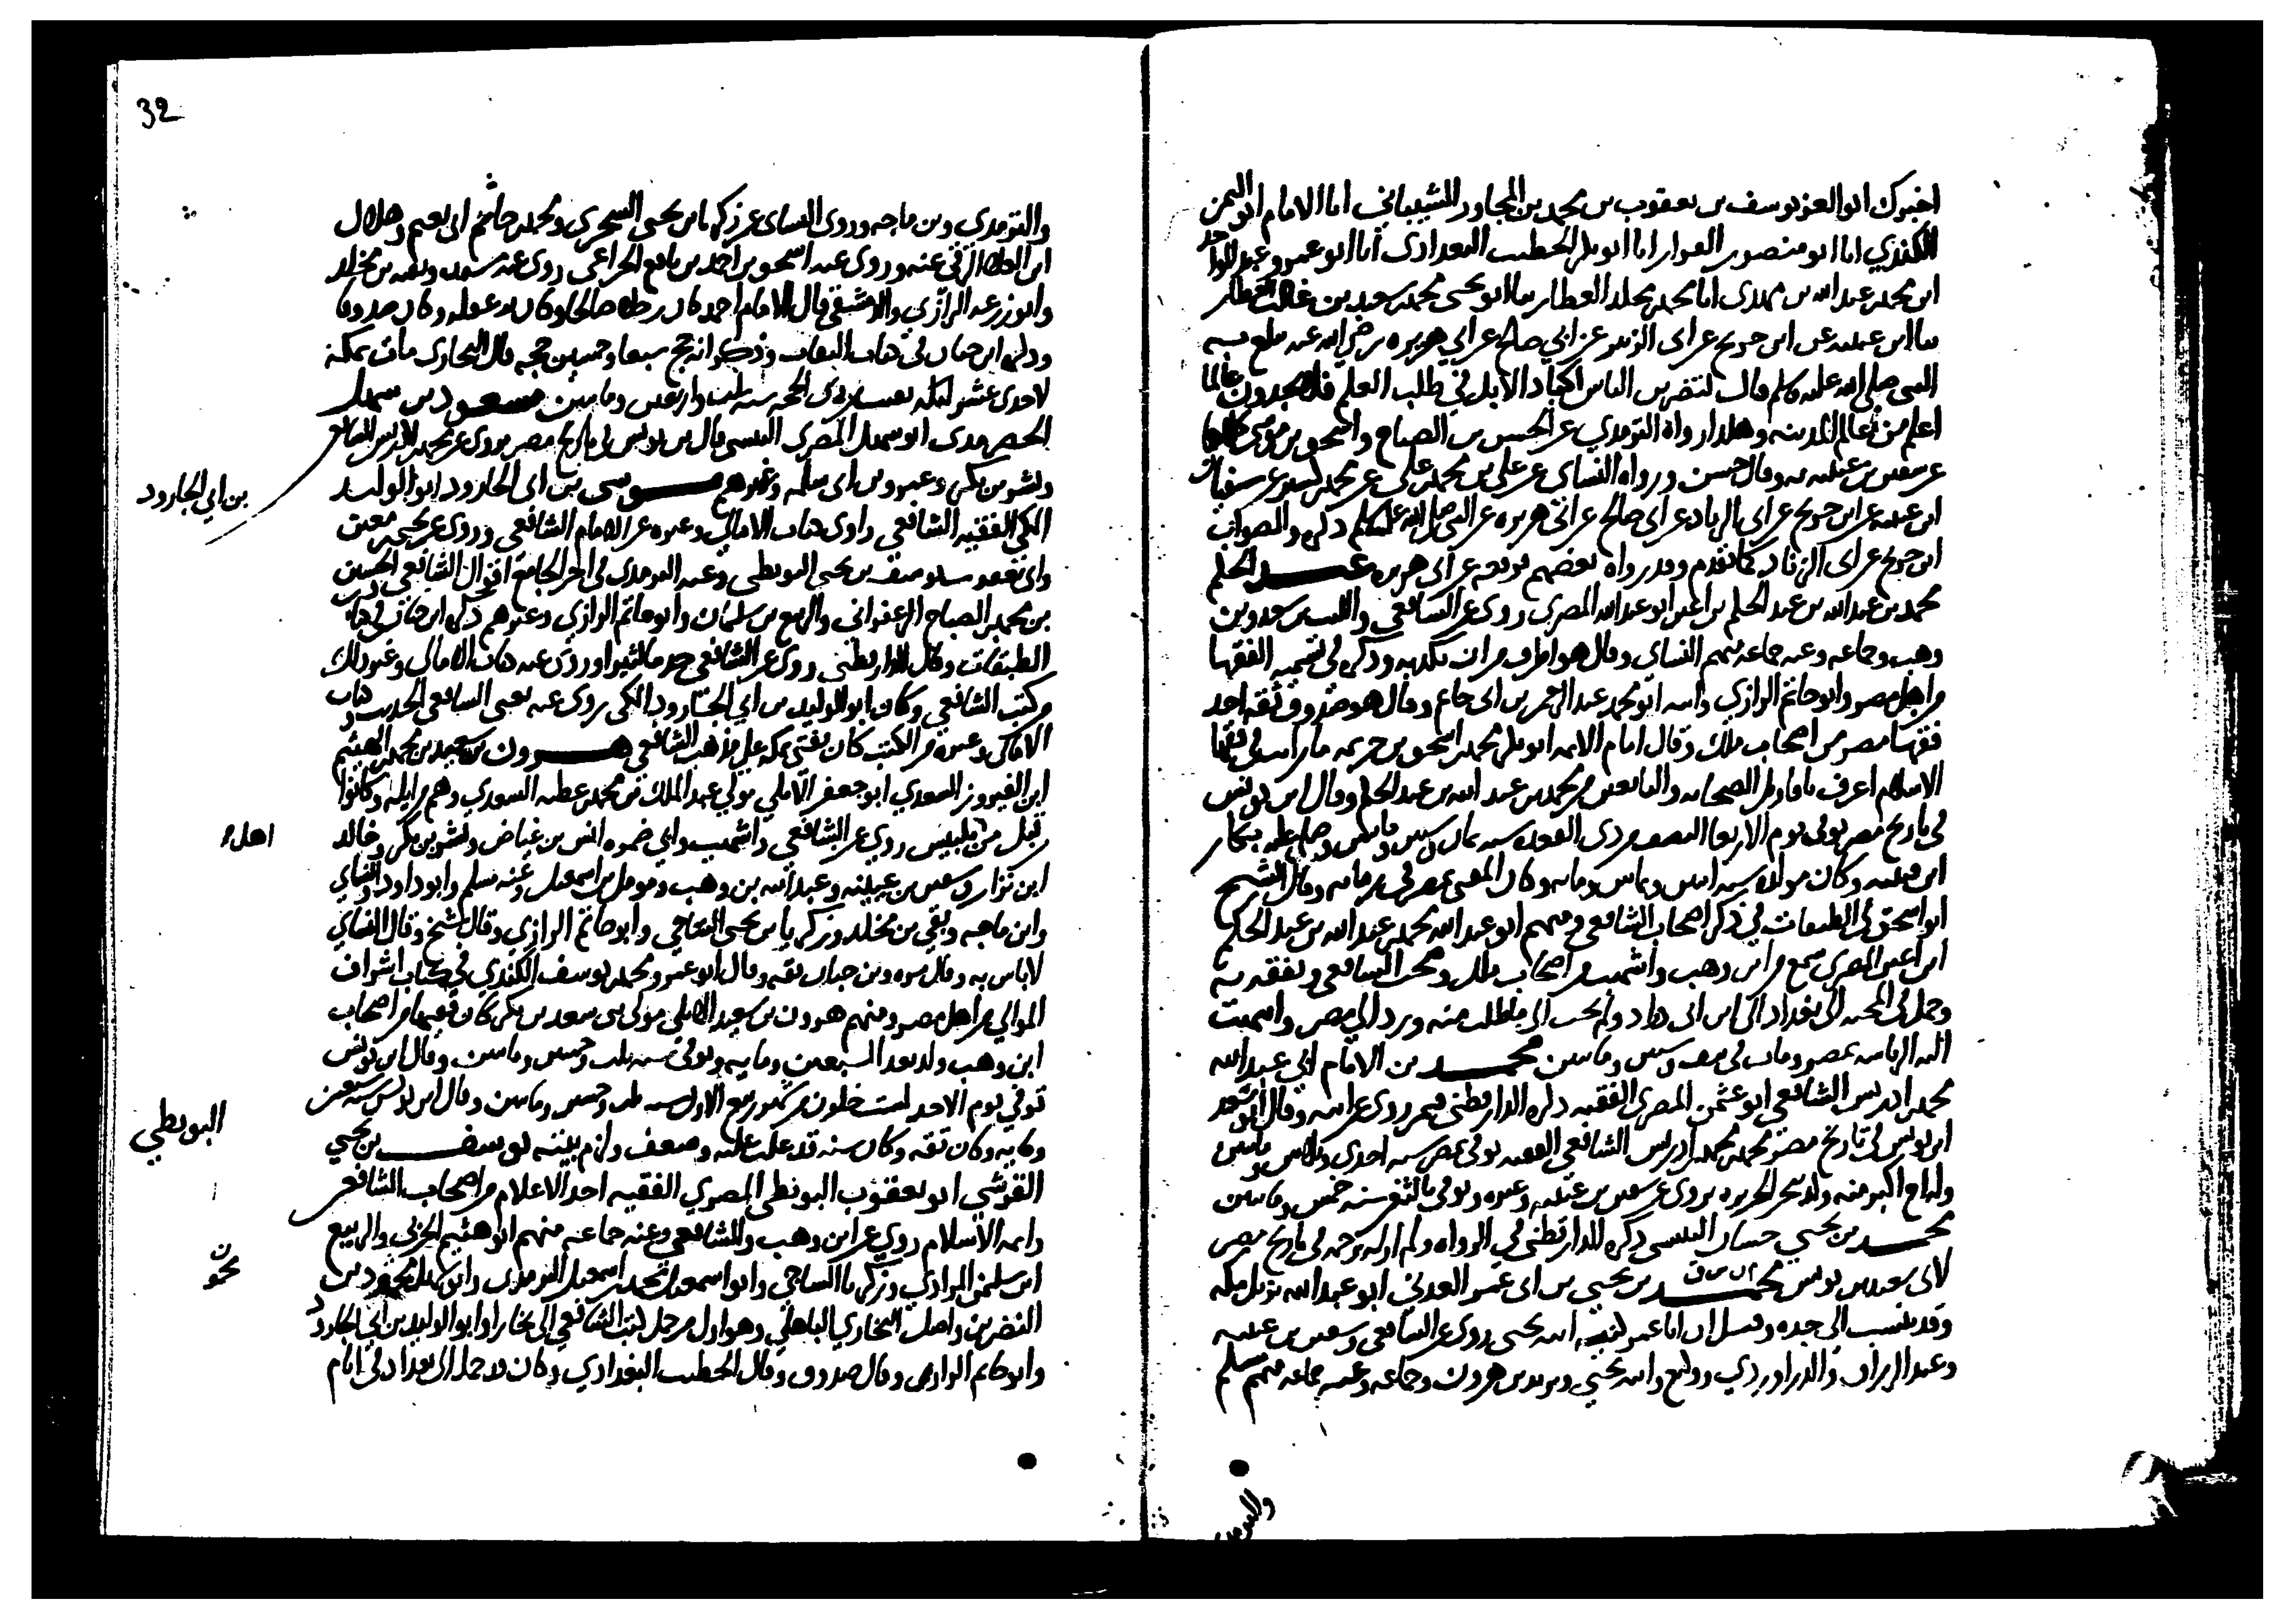 اخبرك ابو العز يوسف بن يعقوب بن محمد بن المجاور الشيباني انا الامام ابو اليمن
الكندي انا ابو منصور القزاز انا ابو بكر الخطيب البغدادي انا ابو عمرو عبد الواحد
ابن محمد بن عبد الله بن مهدي انا محمد بن مخلد العطار ثنا ابو يحيى محمد بن سعيد بن غالب العطار
ثنا ابن عيينه عن ابن جريج عن ابي الزبير عن ابي صالح عن ابي هريره رضي الله عنه يبلغ به
النبي صلى الله عليه وسلم قال لتضربن الناس اكباد الابل في طلب العلم فلا يجدون عالما
اعلم من عالم المدينه وهكذا رواه الترمذي عن الحسن بن الصباح واسحق بن موسى
عن سفين بن عيينه به وقال حسن ورواه النساى عن علي بن محمد بن علي عن محمد بن كثير عن سفيان
ابن عيينه عن ابن جريج عن ابي الزناد عن ابي صالح عن ابي هريره عن النبي صلى الله عليه وسلم ذكره والصواب
ابن جريج عن ابي الزناد كما تقدم وقد رواه بعضهم فوقفه على ابي هريره عبد الحكم
محمد بن عبد الله بن عبد الحكم بن اعين ابو عبد الله المصري روى عن الشافعي والليث بن سعد وبن
وهب وجماعه وعنه جماعه منهم النساي وقال هو اظرف من ان يكذب وذكره في تسميه الفقها
من اهل مصر وابو حاتم الرازي وابنه ابو محمد عبد الرحمن بن ابي حاتم وقال هو صدوق ثقه احد
فقها مصر من اصحاب ملك وقال امام الايمه ابو بكر محمد بن اسحق بن خزيمه ما رايت في فقها
الاسلام اعرف باقاويل الصحابه والتابعين من محمد بن عبد الله بن عبد الحكم وقال ابن يونس
في تاريخ مصر توفي يوم الاربعا النصف من ذي القعده سنه ثمان وستين ومايتين وصلى عليه بكار
ابن قتيبه وكان مولده سنه اثنين وثمانين ومايه وكان المفتي بمصر في زمانه وقال الشيخ
ابو اسحق في الطبقات في ذكر اصحاب الشافعي ومنهم ابو عبد الله محمد بن عبد الله بن عبد الحكم
ابن اعين المصري سمع من ابن وهب واشهب من اصحاب ملك وصحب الشافعي وتفقه به
وحمل في المحنه الى بغداد الى ابن ابي دواد ولم يجب الى ما طلب منه ورد الى مصر وانتهت
اليه الرياسه بمصر ومات في سنه وستين ومايتين محمد بن الامام ابي عبد الله
محمد بن ادريس الشافعي ابو عثمن المصري الفقيه ذكره الدارقطني فيمن روى عن ابيه وقال ابو سعيد
ابن يونس في تاريخ مصر محمد بن محمد بن ادريس الشافعي الفقيه توفي بمصر سنه احدى وثلاثين ومايتين
وله اخ اكبر منه ولد بمصر الجزيره يروي عن سفين بن عيينه وغيره وتوفي بالثغر سنه خمس ومايتين
محمد بن يحيى حسان التنيسي ذكره الدارقطني في الرواه ولم ار له ترجمه في تاريخ مصر
لابي سعيد بن يونس محمد بن يحيى بن ابي عمر العدني ابو عبد الله نزيل مكه
وقد ينسب الى جده وقيل ان ابا عمر كنيه ابيه يحيى روى عن الشافعي وسفين بن عيينه
وعبد الرزاق والدراوردي ووكيع وابيه يحيى ويزيد بن هرون وجماعه وعنه جماعه منهم مسلم
والترمذي
32
والترمذي وبن ماجه وروى النساى عن زكريا بن يحيى السجزي ومحمد بن حاتم بن نعيم وهلال
ابن العلاء الرقي عنه وروى عنه اسحق بن احمد بن نافع الخزاعي روى عنه وبقي بن مخلد
وابو زرعه الرازي والدمشقي قال الامام احمد كان رجلا صالحا وكان به غفله وكان صدوقا
وذكره ابن حبان في كتاب الثقات وذكر انه حج سبعا وسبعين حجه قال البخاري مات بمكه
لاحدى عشر ليله بقيت من ذي الحجه سنه ثلث واربعين ومايتين مسعود بن سهل
المصري ابو سهل المصري التنيسي قال بن يونس في تاريخ مصر يروى عن محمد بن ادريس الشافعي
وبشر بن بكر وعمرو بن ابي سلمه وغيرهم موسى بن ابي الجارود ابو الوليد
بن ابي الجارود
المكي الفقيه الشافعي راوى كتاب الامالي وغيره عن الامام الشافعي وروى عن يحيى بن معين
وابي يعقوب يوسف بن يحيى البويطي وعنه الترمذي في اخر الجامع اقوال الشافعي والحسين
بن محمد الصباح الزعفراني والربيع بن سليمان وابو حاتم الرازي وغيرهم ذكره ابن حبان في كتاب
الطبقات وقال الدارقطني روى عن الشافعي حديثا كثيرا وروى عنه كتاب الامالي وغير ذلك
من كتب الشافعي وكان ابو الوليد بن ابي الجارود المكي يروى عنه يعني الشافعي الحديث وكتاب
الامالي وغيره من الكتب كان يفتي بمكه على مذهب الشافعي هرون بن سعيد بن محمد بن الهيثم
ابن الفيروز السعدي ابو جعفر الايلي مولى عبد الملك بن محمد بن عطيه السعدي وهم من ايله وكانوا
قبل من بلبيس روى عن الشافعي واشهب وابي ضمره انس بن عياض وبشر بن بكر وخالد
اهل
ابن نزار وسفين بن عيينه وعبد الله بن وهب ومومل بن اسمعيل وعنه مسلم وابو داود والنساي
وابن ماجه وبقي بن مخلد وزكريا بن يحيى الساجي وابو حاتم الرازي وقال شيخ وقال النساي
لاباس به وقال مره وبن حبان ثقه وقال ابو عمرو محمد بن يوسف الكندي في كتاب اشراف
الموالي من اهل مصر ومنهم هرون بن سعيد الايلي مولى بني سعد بن بكر كان فقيها من اصحاب
ابن وهب ولد بعد السبعين ومايه وتوفي سنه ثلث وخمسين ومايتين وقال ابن يونس
توفي يوم الاحد لست خلون من شهر ربيع الاول سنه ثلث وخمسين ومايتين وقال ابن يونس سنه سبعين
ومايه وكان ثقه وكان سنه قد علت عليه وضعف ولزم بيته يوسف بن يحيى
البويطي
القرشي ابو يعقوب البويطي المصري الفقيه احد الاعلام من اصحاب الشافعي
وايمه الاسلام روى عن ابن وهب والشافعي وعنه جماعه منهم ابراهيم الحربي والربيع
ابن سليمن المرادي وزكريا الساجي وابو اسمعيل محمد بن اسمعيل الترمذي وابو سهل محمود بن
نحو
النضر بن واصل البخاري الباهلي وهو اول من حمل كتب الشافعي الى بخارا وابو الوليد بن ابي الجارود
وابو حاتم الرازي وقال صدوق وقال الخطيب البغدادي وكان قد حمل الى بغداد في ايام